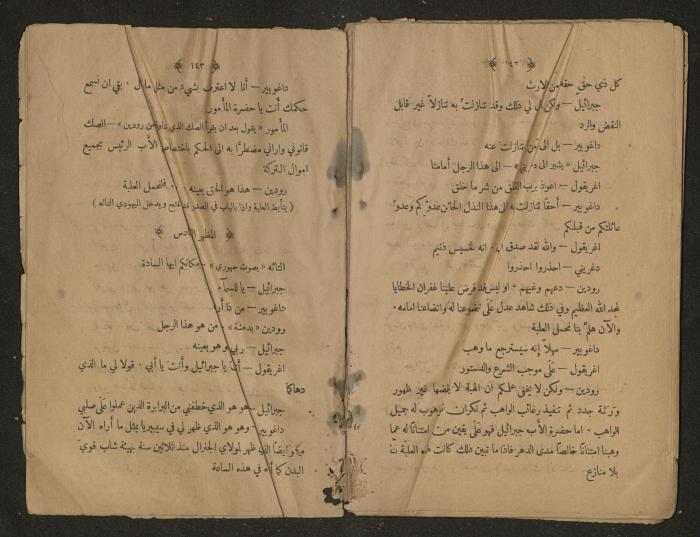 ﴿ ١٤٢ ﴾
كل ذي حق حقه من الارث
جبرائيل — ولكن لي ذلك وقد تنازلت به تنازلاً غير قابل
النقض والرد
داغوبير — بل الى من تنازلت عنه
جبرائيل « يشير الى دغريني » — الى هذا الرجل أمامنا
اغريقول — اعوذ برب الفلق من شر ما خلق
داغوبير — أحقاً تنازلت به الى هذا النذل الخائن عدوكم وعدو
عائلتكم من قبلكم
اغريقول — والله لقد صدق ابي انه لخسيس ذنيم
دغريني — احذروا احذروا
رودين — دعهم وغيهم ٠ او ليس قد فرض علينا غفران الخطايا
لمجد الله العظيم وفي ذلك شاهد عدل على خضوعنا له واتضاعنا امامه ٠
والآن هلمَّ بنا نحمل العلبة
داغوبير — مهلاً إنه سيسترجع ما وهب
اغريقول — على موجب الشرع والدستور
رودين — ولكن لا يخفى علمكم ان الهبة لا ينقضها غير ظهور
ورثة جدد ثم تنفيذ رغائب الواهب ثم نكران الموهوب له جميل
الواهب ٠ اما حضرة الأب جبرائيل فهو على يقين من امتناننا له عما
وهبنا امتناناً خالصاً مدى الدهر فاذا ما تبين ذلك كانت هذه العلبة لنا
بلا منازع
﴿ ١٤٣ ﴾
داغوبير — أنا لا اعترف بشيء من مثل ما قال ٠ بقي ان نسمع
حكمك أنت يا حضرة المأمور
المأمور « يقول بعد ان يقرأ الصك الذي ناوله من رودين » — الصك
قانوني واراني مضطراً به الى الحكم باختصاص الأب الرئيس بجميع
اموال التركة
رودين — هذا هو الحق بعينه ٠ ٠ ٠ فلنحمل العلبة
( يتأبط العلبة واذا بالباب في الصدر قد فتح ويدخل اليهودي التائه )
﴿ المنظر السادس ﴾
التائه « بصوت جهوري » — مكانكم ايها السادة
جبرائيل — يا للسماء
داغوبير — من ذا أرى
رودين « بدهشة » — من هو هذا الرجل
جبرائيل — ربي هو بعينه
اغريقول — أنت يا جبرائيل وأنت يا أبي ٠ قولا لي ما الذي
دهاكما
جبرائيل — هو هو الذي خطفني من البرابرة الذين عملوا على صلبي
داغوبير — وهو هو الذي ظهر لي في سيبيريا بمثل ما أراه الآن
وهو ايضاً الذي ظهر لمولاي الجنرال منذ ثلاثين سنة بهيئة شاب قوي
البدن كما أراه في هذه الساعة